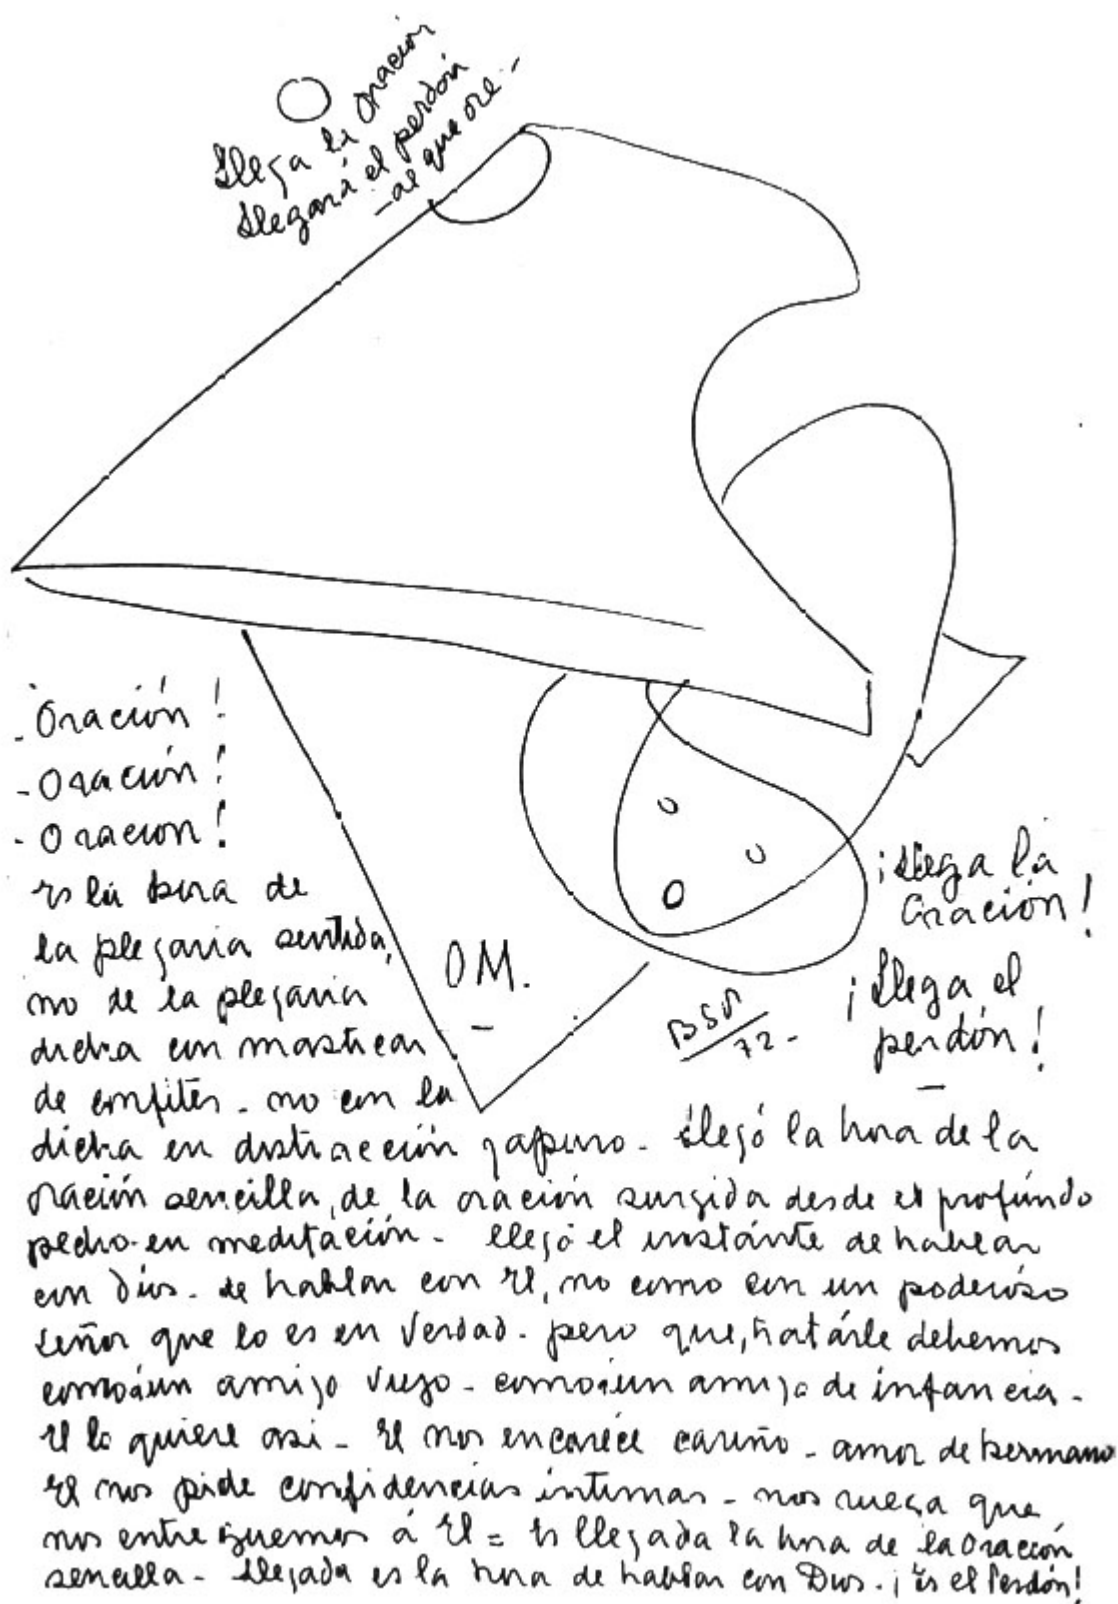 Llega la oración
Llegará el perdón
- al que ore -
¡Oración!
- Oración!
- Oracion!
es la hora de
la plegaria sentida,
no de la plegaria
dicha con masticar
de confites - no con la
dicha en distracción y apuro - Llegó la hora de la
oración sencilla, de la oración surgida desde el profúndo
pecho en meditación - llegó el instánte de hablar
con Dios - de hablar con El, no como con un poderóso
señor que lo es en Verdad - pero que, tratárle debemos
como a un amigo viejo - como a un amigo de infancia -
El lo quiere asi - El nos encaréce cariño - amor de hermano
El nos pide confidencias íntimas - nos ruega que
nos entreguemos á El = Es llegada la hora de la oración
sencilla - Llegada es la hora de hablar con Dios - ¡Es el Perdón!
OM.
BSP
72 -
¡Llega la
Oración!
¡Llega el
perdón!